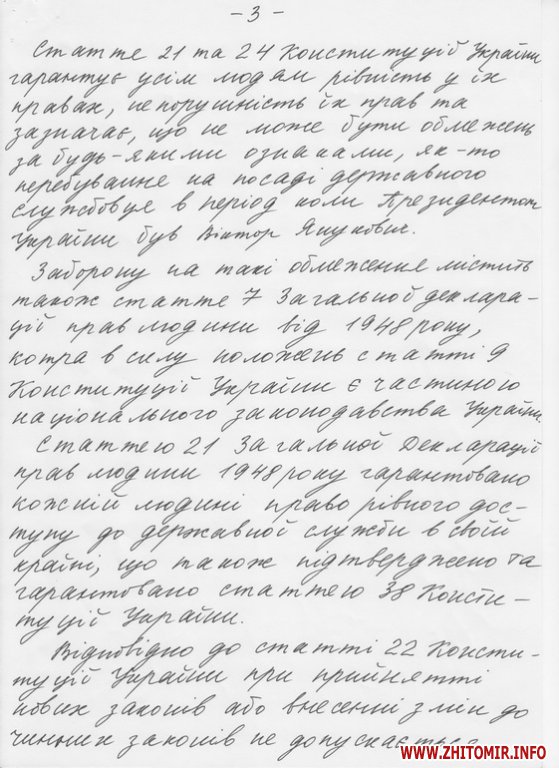 - 3 -
Статтє 21 та 24 Конституції України
гарантує усім людям рівність у їх
правах, непорушність їх прав та
зазначає, що не може бути обмежень
за будь-якими ознаками, як-то
перебування на посаді державного
службовця в період коли Президентом
України був Віктор Янукович.
Заборону на такі обмеження містить
також статтє 7 Загальної деклара-
ції прав людини від 1948 року,
котра в силу положень статті 9
Конституції України є частиною
національного законодавства України.
Статтею 21 Загальної Декларації
прав людини 1948 року гарантовано
кожній людині право рівного дос-
тупу до державної служби в своїй
країні, що також підтверджено та
гарантовано статтею 38 Консти-
туції України.
Відповідно до статті 22 Консти-
туції України при прийнятті
нових законів або внесенні змін до
чинних законів не допускається
WWW.ZHITOMIR.INFO